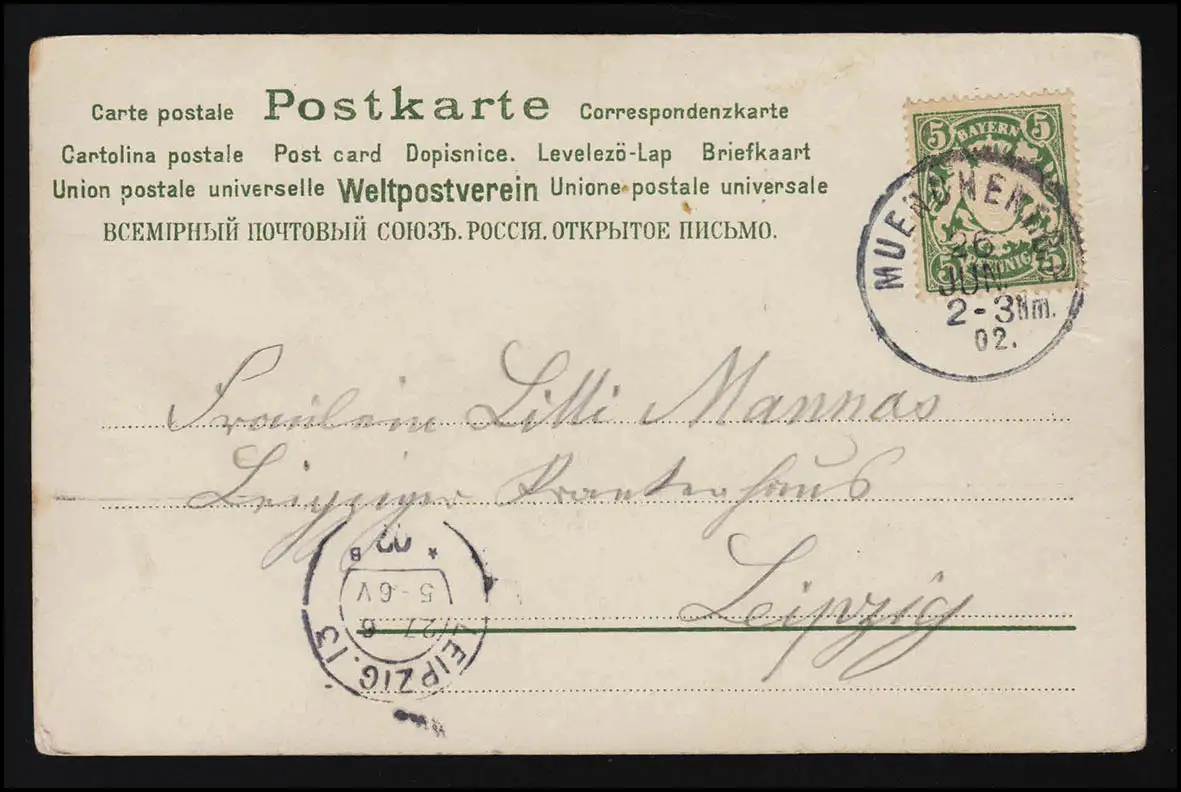 Carte postale Postkarte Correspondenzkarte
Cartolina postale Post card Dopisnice. Levelezö-Lap Briefkaart
Union postale universelle Weltpostverein Unione postale universale
ВСЕМІРНЫЙ ПОЧТОВЫЙ СОЮЗЪ. РОССІЯ. ОТКРЫТОЕ ПИСЬМО.
5 BAYERN 5
5 PFENNIG 5
MUENCHEN
26
JUN.
2-3 Nm.
02.
Fräulein Lilli Mannas
Leipziger
Leipzig
LEIPZIG. 13
27 6
5-6V
* B